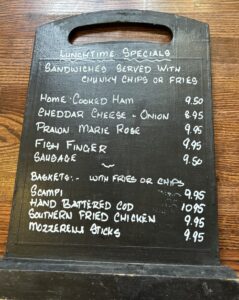 LUNCHTIME SPECIALS
SANDWICHES SERVED WITH
CHUNKY CHIPS OR FRIES
HOME COOKED HAM 9.50
CHEDDAR CHEESE - ONION 8.95
PRAWN MARIE ROSE 9.95
FISH FINGER 9.95
SAUSAGE 9.50
BASKETS:- WITH FRIES OR CHIPS
SCAMPI 9.95
HAND BATTERED COD 10.95
SOUTHERN FRIED CHICKEN 9.95
MOZZERELLA STICKS 9.95